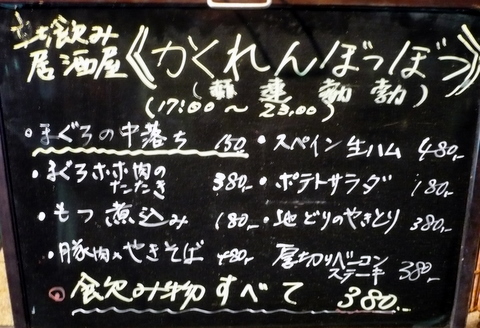 立ち飲み
居酒屋《かくれんぼっぼっ》
(17:00～23:00)
・まぐろの中落ち 150
・まぐろホホ肉のたたき 380.-
・もつ煮込み 180.-
・豚肉×やきそば 480.-
・スペイン生ハム 480.-
・ポテトサラダ 180.-
・地どりのやきとり 380.-
厚切りベーコン
ステーキ 380.-
飲み物すべて 380.-